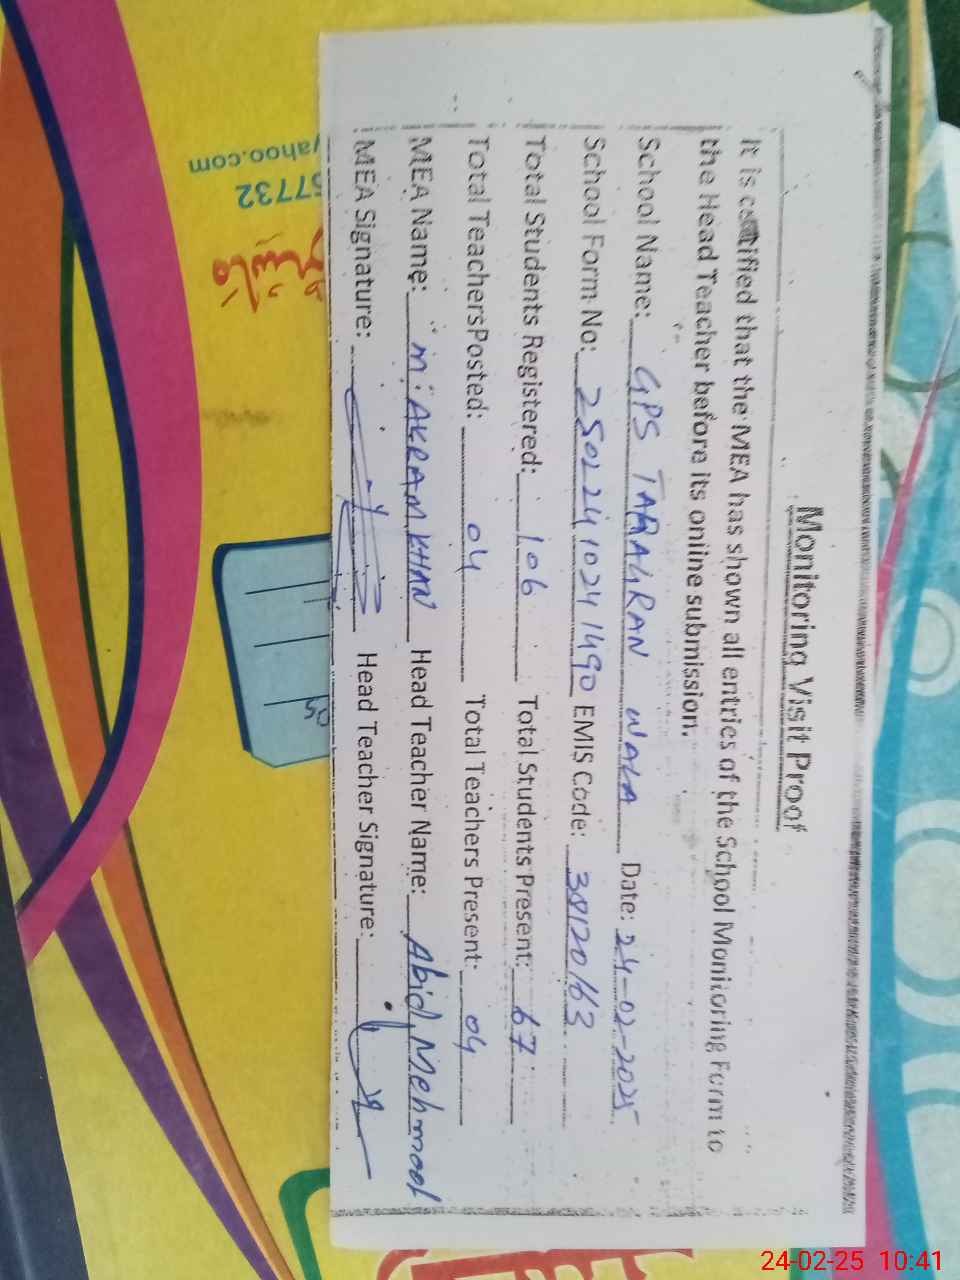 Monitoring Visit Proof
It is certified that the MEA has shown all entries of the School Monitoring Form to
the Head Teacher before its online submission.
School Name: GPS TARAGRAN WALA Date: 24-02-2025
School Form No: 25022410241490 EMIS Code: 38120163
Total Students Registered: 106 Total Students Present: 67
Total Teachers Posted: 04 Total Teachers Present: 04
MEA Name: M. AKRAM KHAN Head Teacher Name: Abid Mehmood
MEA Signature: Head Teacher Signature:
yahoo.com
57732
05
24-02-25 10:41